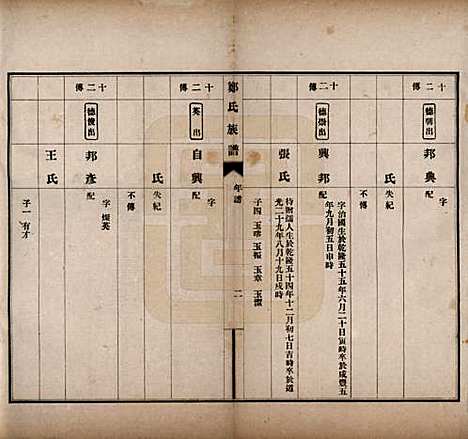 十二傳
德朝出
邦典
配
氏
失紀
不傳
十二傳
德煅出
興邦
字治國生於乾隆五十五年六月二十日寅時卒於咸豐五
年九月初五日申時
配
張氏
待贈孺人生於乾隆五十四年十二月初七日吉時卒於道
光二十九年八月十九日戌時
子四 玉 玉振 玉章 玉
鄭氏族譜
年譜
二
十二傳
英出
自興
字
配
氏
失紀
不傳
十二傳
德俊出
邦彥
字 煥英
配
王氏
子一 有才